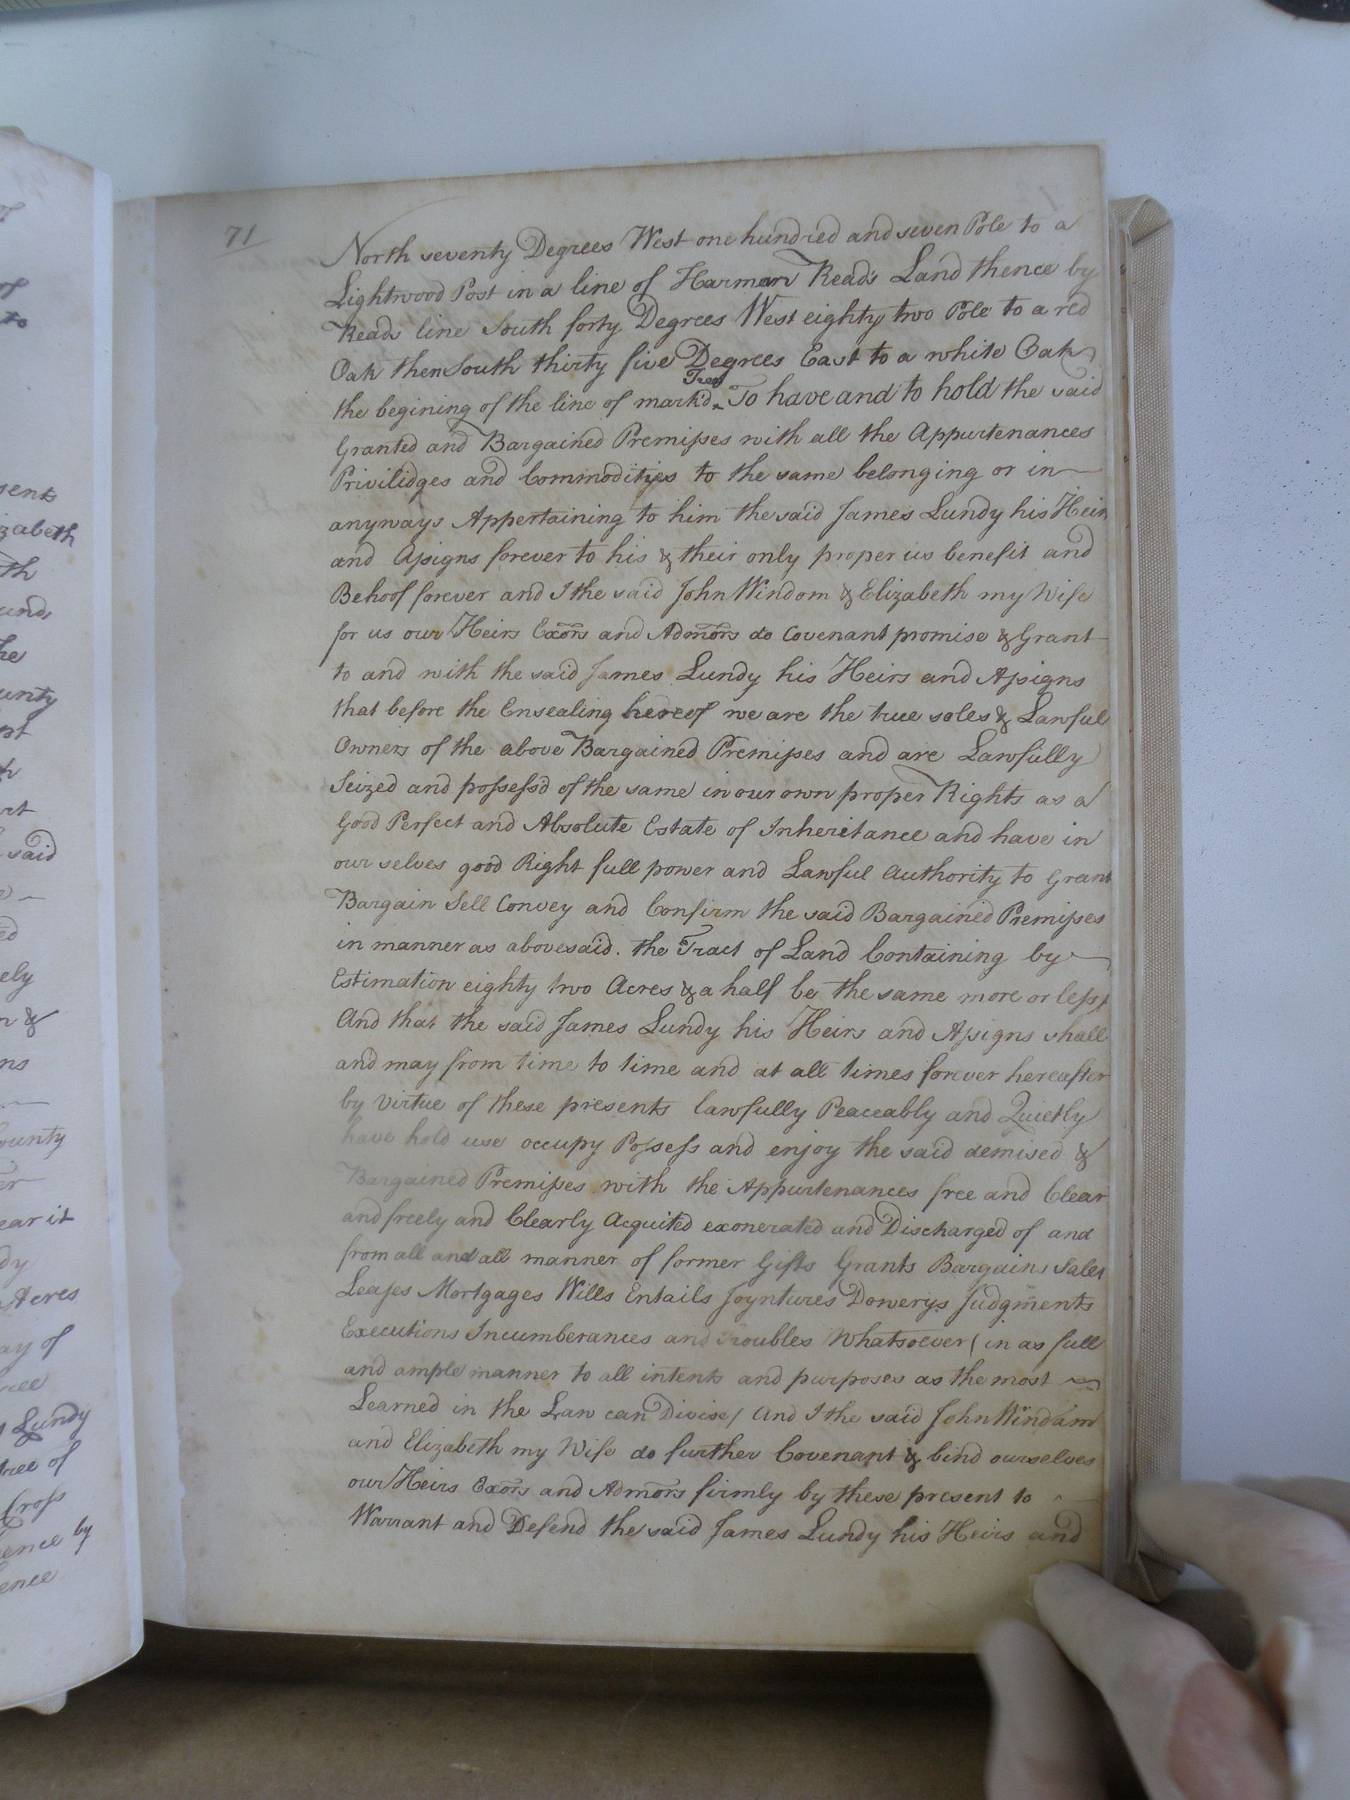 71
North seventy Degrees West one hundred and seven Pole to a
Lightwood Post in a line of Harman Reads Land thence by
Reads line South forty Degrees West eighty two Pole to a red
Oak then South thirty five Degrees East to a white Oak
Trees
the begining of the line of mark'd ^ To have and to hold the said
Granted and Bargained Premisses with all the Appurtenances
Privilidges and Commodityes to the same belonging or in
anyways Appertaining to him the said James Lundy his Heirs
and Assigns forever to his & their only proper us benefit and
Behoof forever and I the said John Windom & Elizabeth my Wife
for us our Heirs Exors and Admors do Covenant promise & Grant
to and with the said James Lundy his Heirs and Assigns
that before the Ensealing hereof we are the true soles & Lawful
Owners of the above Bargained Premisses and are Lawfully
Seized and possess'd of the same in our own proper Rights as a
Good Perfect and Absolute Estate of Inheritance and have in
our selves good Right full power and Lawful Authority to Grant
Bargain Sell Convey and Confirm the said Bargained Premisses
in manner as abovesaid. the Tract of Land Containing by
Estimation eighty two Acres & a half be the same more or less,
And that the said James Lundy his Heirs and Assigns shall
and may from time to time and at all times forever hereafter
by Virtue of these presents lawfully Peaceably and Quietly
have hold use occupy Possess and enjoy the said demised &
Bargained Premisses with the Appurtenances free and Clear
and freely and Clearly Acquited exonerated and Discharged of and
from all and all manner of former Gifts Grants Bargains Sales
Leases Mortgages Wills Entails Joyntures Dowerys Judgments
Executions Incumberances and Troubles Whatsoever (in as full
and ample manner to all intents and purposes as the most
Learned in the Law can Divise) And I the said John Windam
and Elizabeth my Wife do further Covenant & bind ourselves
our Heirs Exors and Admors firmly by these present to
Warrant and Defend the said James Lundy his Heirs and